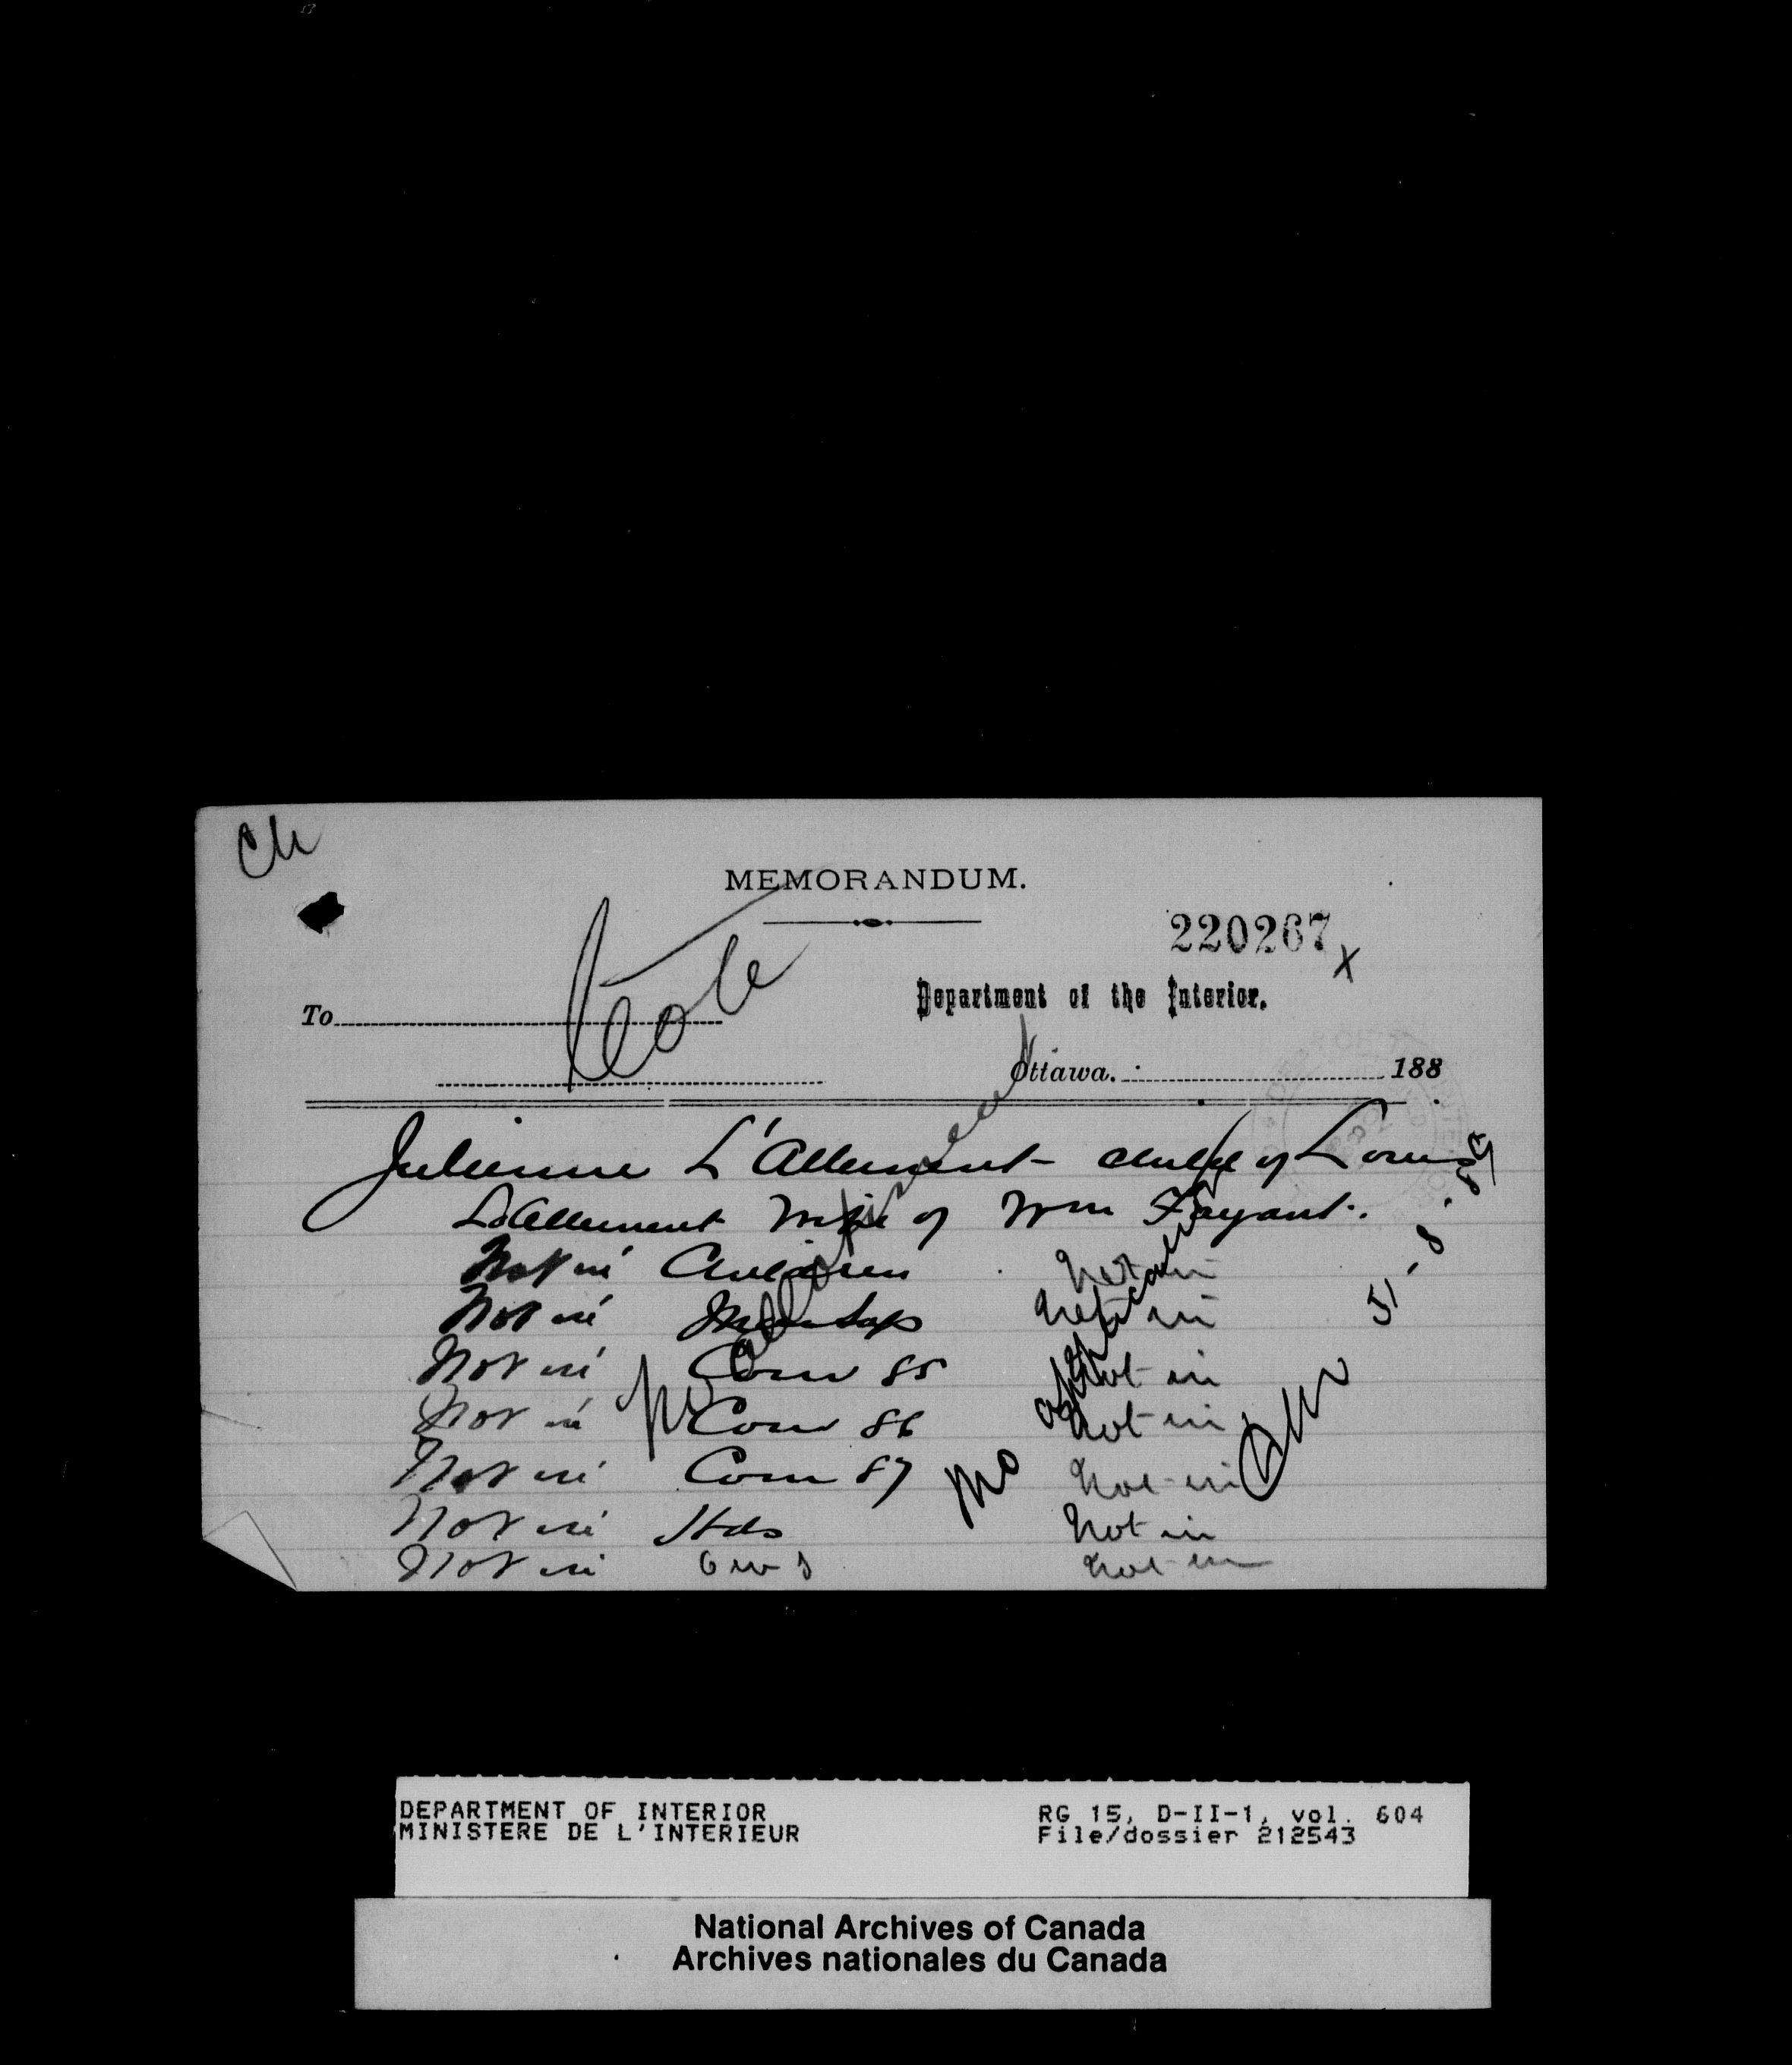 Ch
MEMORANDUM.
220267
X
Department of the Interior.
To
Cote
Ottawa. 188
Julienne L'Allement child of Louis
L'Allement wife of Wm Fayant.
Not in Children Not in
Not in Not in
Not in Com 85 Not in
Not in Com 86 Not in
Not in Com 87 Not in
Not in Hds Not in
Not in Not in
No
No application
5-8-89
DEPARTMENT OF INTERIOR
MINISTERE DE L'INTERIEUR
RG 15, D-II-1, vol. 604
File/dossier 212543
National Archives of Canada
Archives nationales du Canada